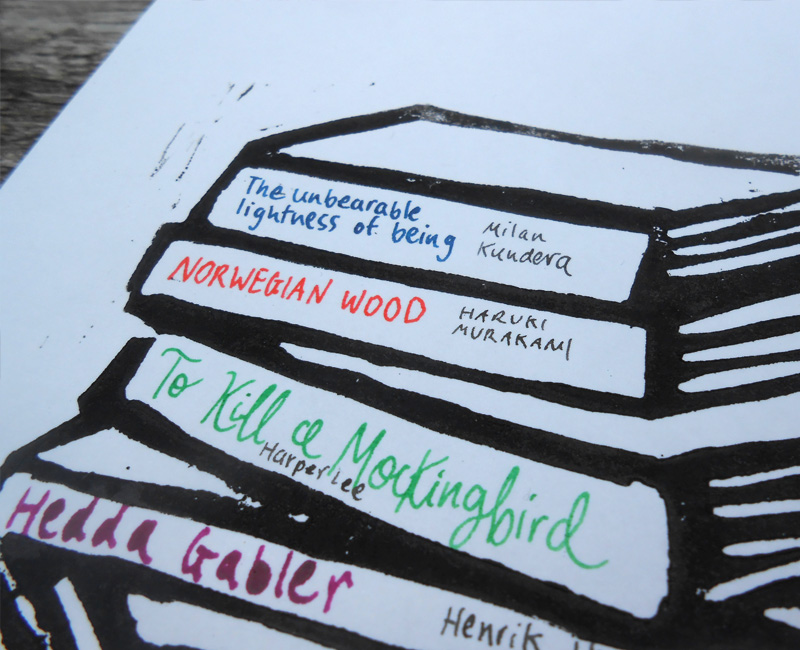 The unbearable
lightness of being
Milan
Kundera
NORWEGIAN WOOD
HARUKI
MURAKAMI
To Kill a Mockingbird
Harper Lee
Hedda Gabler
Henrik